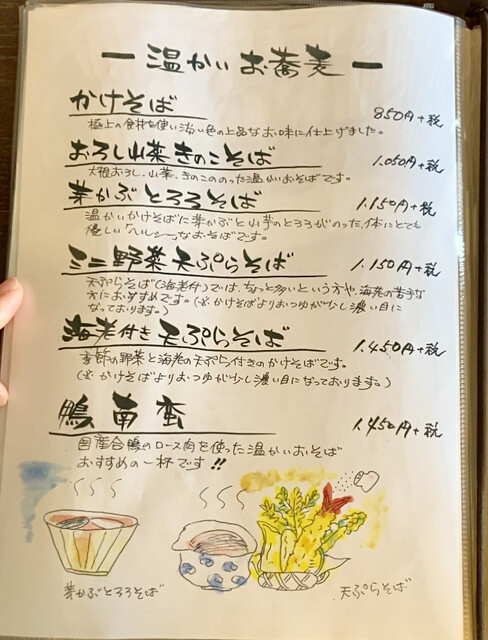 温かいお蕎麦
かけそば 850円+税
極上の食材を使い淡い色の上品なお味に仕上げました。
おろし山菜きのこそば 1.050円+税
大根おろし、山菜、きのこののった温かいおそばです。
芽かぶとろろそば 1.150円+税
温かいかけそばに芽かぶと山芋のとろろがのった、体にとても
優しい「ヘルシー」なおそばです。
ミニ野菜天ぷらそば 1.150円+税
天ぷらそば(海老付)では、ちょっと多いという方や、海老の苦手な
方におすすめです。(※かけそばよりおつゆが少し濃い目に
なっております。)
海老付き天ぷらそば 1.450円+税
季節の野菜と海老の天ぷら付きのかけそばです。
(※かけそばよりおつゆが少し濃い目になっております。)
鴨南蛮 1.450円+税
国産合鴨のロース肉を使った温かいおそば
おすすめの一杯です!!
芽かぶとろろそば
天ぷらそば